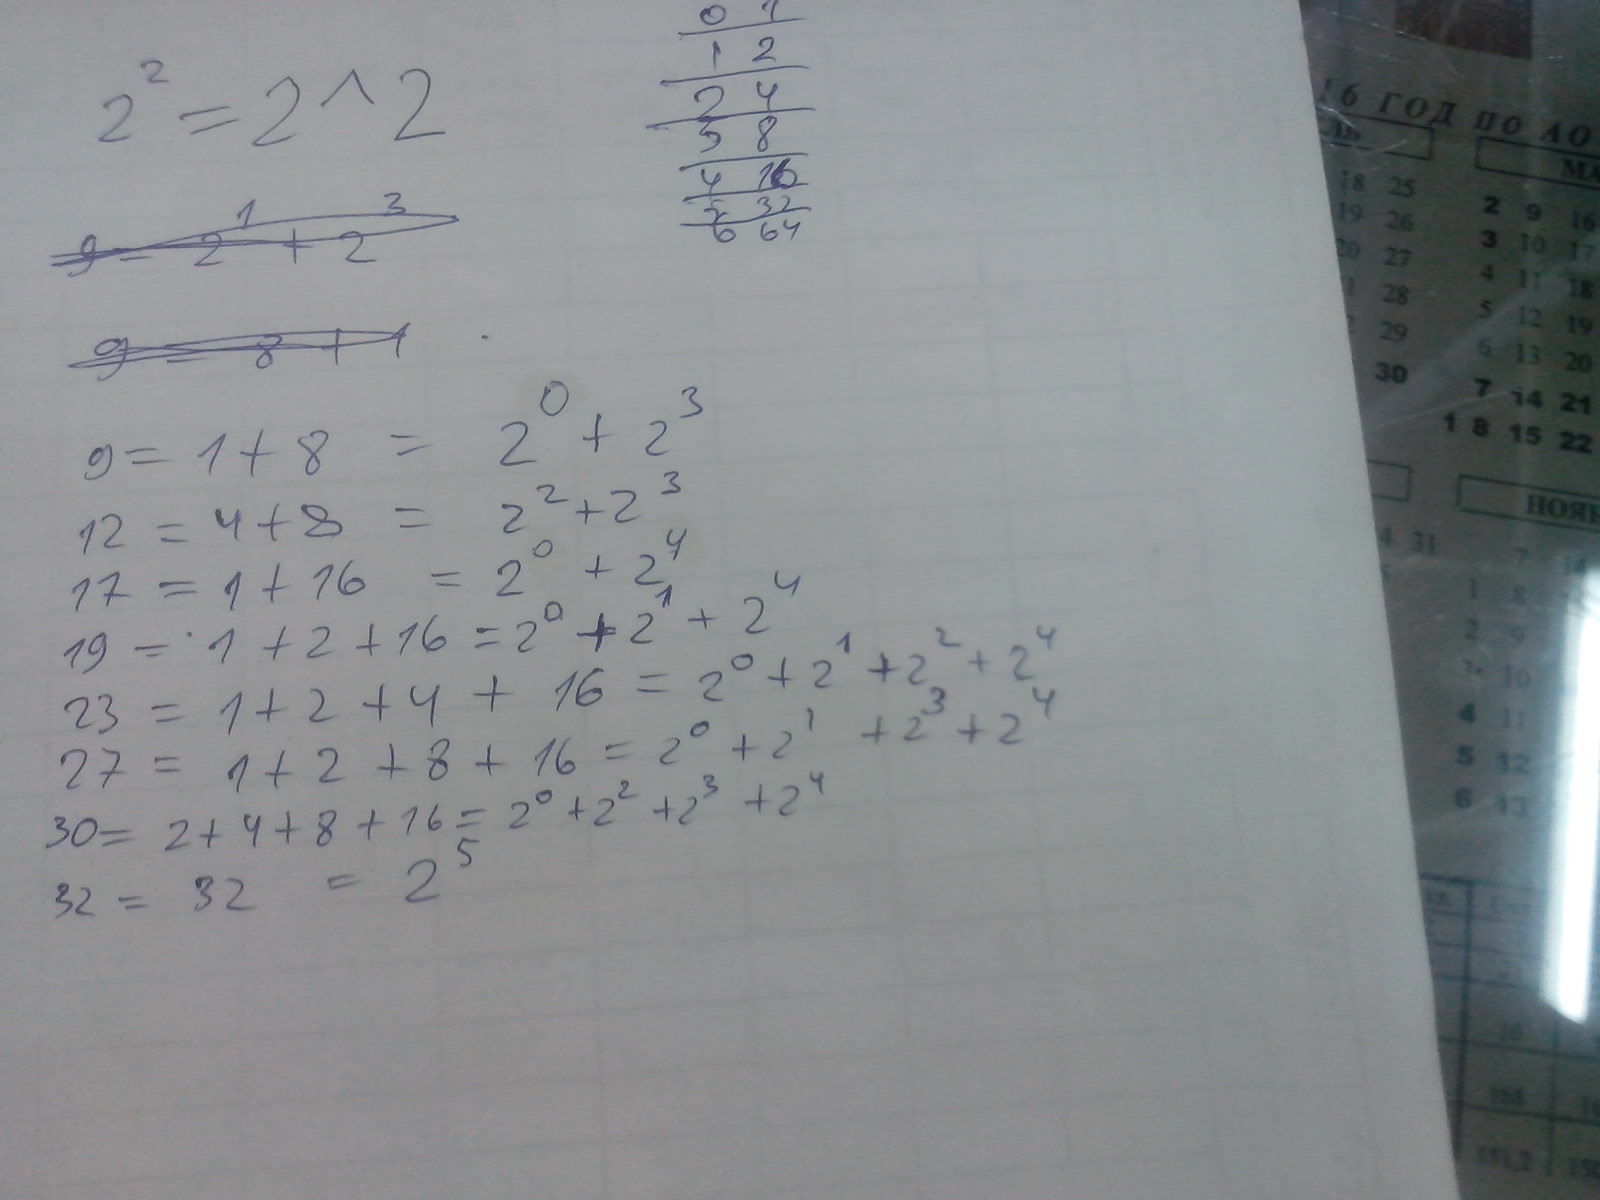 2² = 2^2
9 = 2¹ + 2³
9 = 8 + 1
0 1
1 2
2 4
3 8
4 16
5 32
6 64
9 = 1 + 8 = 2⁰ + 2³
12 = 4 + 8 = 2² + 2³
17 = 1 + 16 = 2⁰ + 2⁴
19 = 1 + 2 + 16 = 2⁰ + 2¹ + 2⁴
23 = 1 + 2 + 4 + 16 = 2⁰ + 2¹ + 2² + 2⁴
27 = 1 + 2 + 8 + 16 = 2⁰ + 2¹ + 2³ + 2⁴
30 = 2 + 4 + 8 + 16 = 2⁰ + 2² + 2³ + 2⁴
32 = 32 = 2⁵
16 ГОД ПО АО
МА
18 25
2 9 16
19 26
3 10 17
20 27
4 11 18
28
5 12 19
29
6 13 20
30
7 14 21
1 8 15 22
НОЯ
31
7 14
1 8
2 9
10
4 11
5 12
6 13